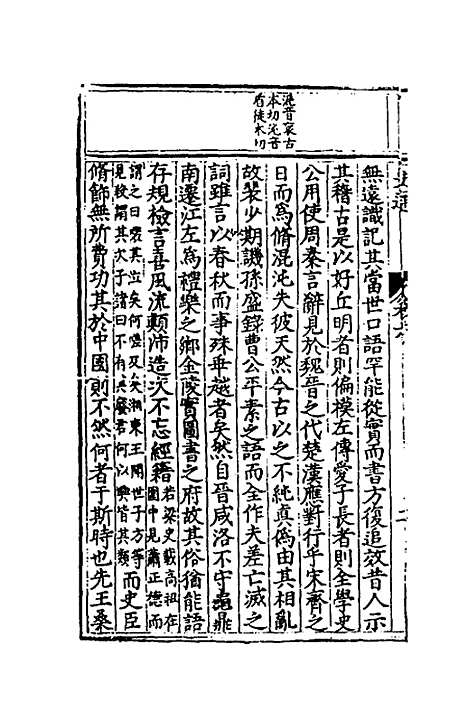 混音袞古
本切沌音
盾徒本切
史通
無遠識記其當世口語罕能從實而書方復追效昔人示
其稽古是以好丘明者則偏模左傳愛子長者則全學史
公用使周秦言辭見於魏晉之代楚漢應對行乎宋齊之
日而為脩混沌失彼天然今古以之不純真偽由其相亂
故裴少期譏孫盛錄曹公平素之語而全作夫差亡滅之
詞雖言以春秋而事殊乖越者矣然自晉咸洛不守龜鼎
南遷江左為禮樂之鄉金陵實圖書之府故其俗猶能語
存規檢言喜風流顛沛造次不忘經籍若梁史載高祖在
圍中見蕭正德而
謂之曰啜其泣矣何嗟及矣湘東王聞世子方等
見殺謂其次子諸曰不有其廢君何以興皆其類而史臣
脩飾無所費功其於中國則不然何者于斯時也先王桑